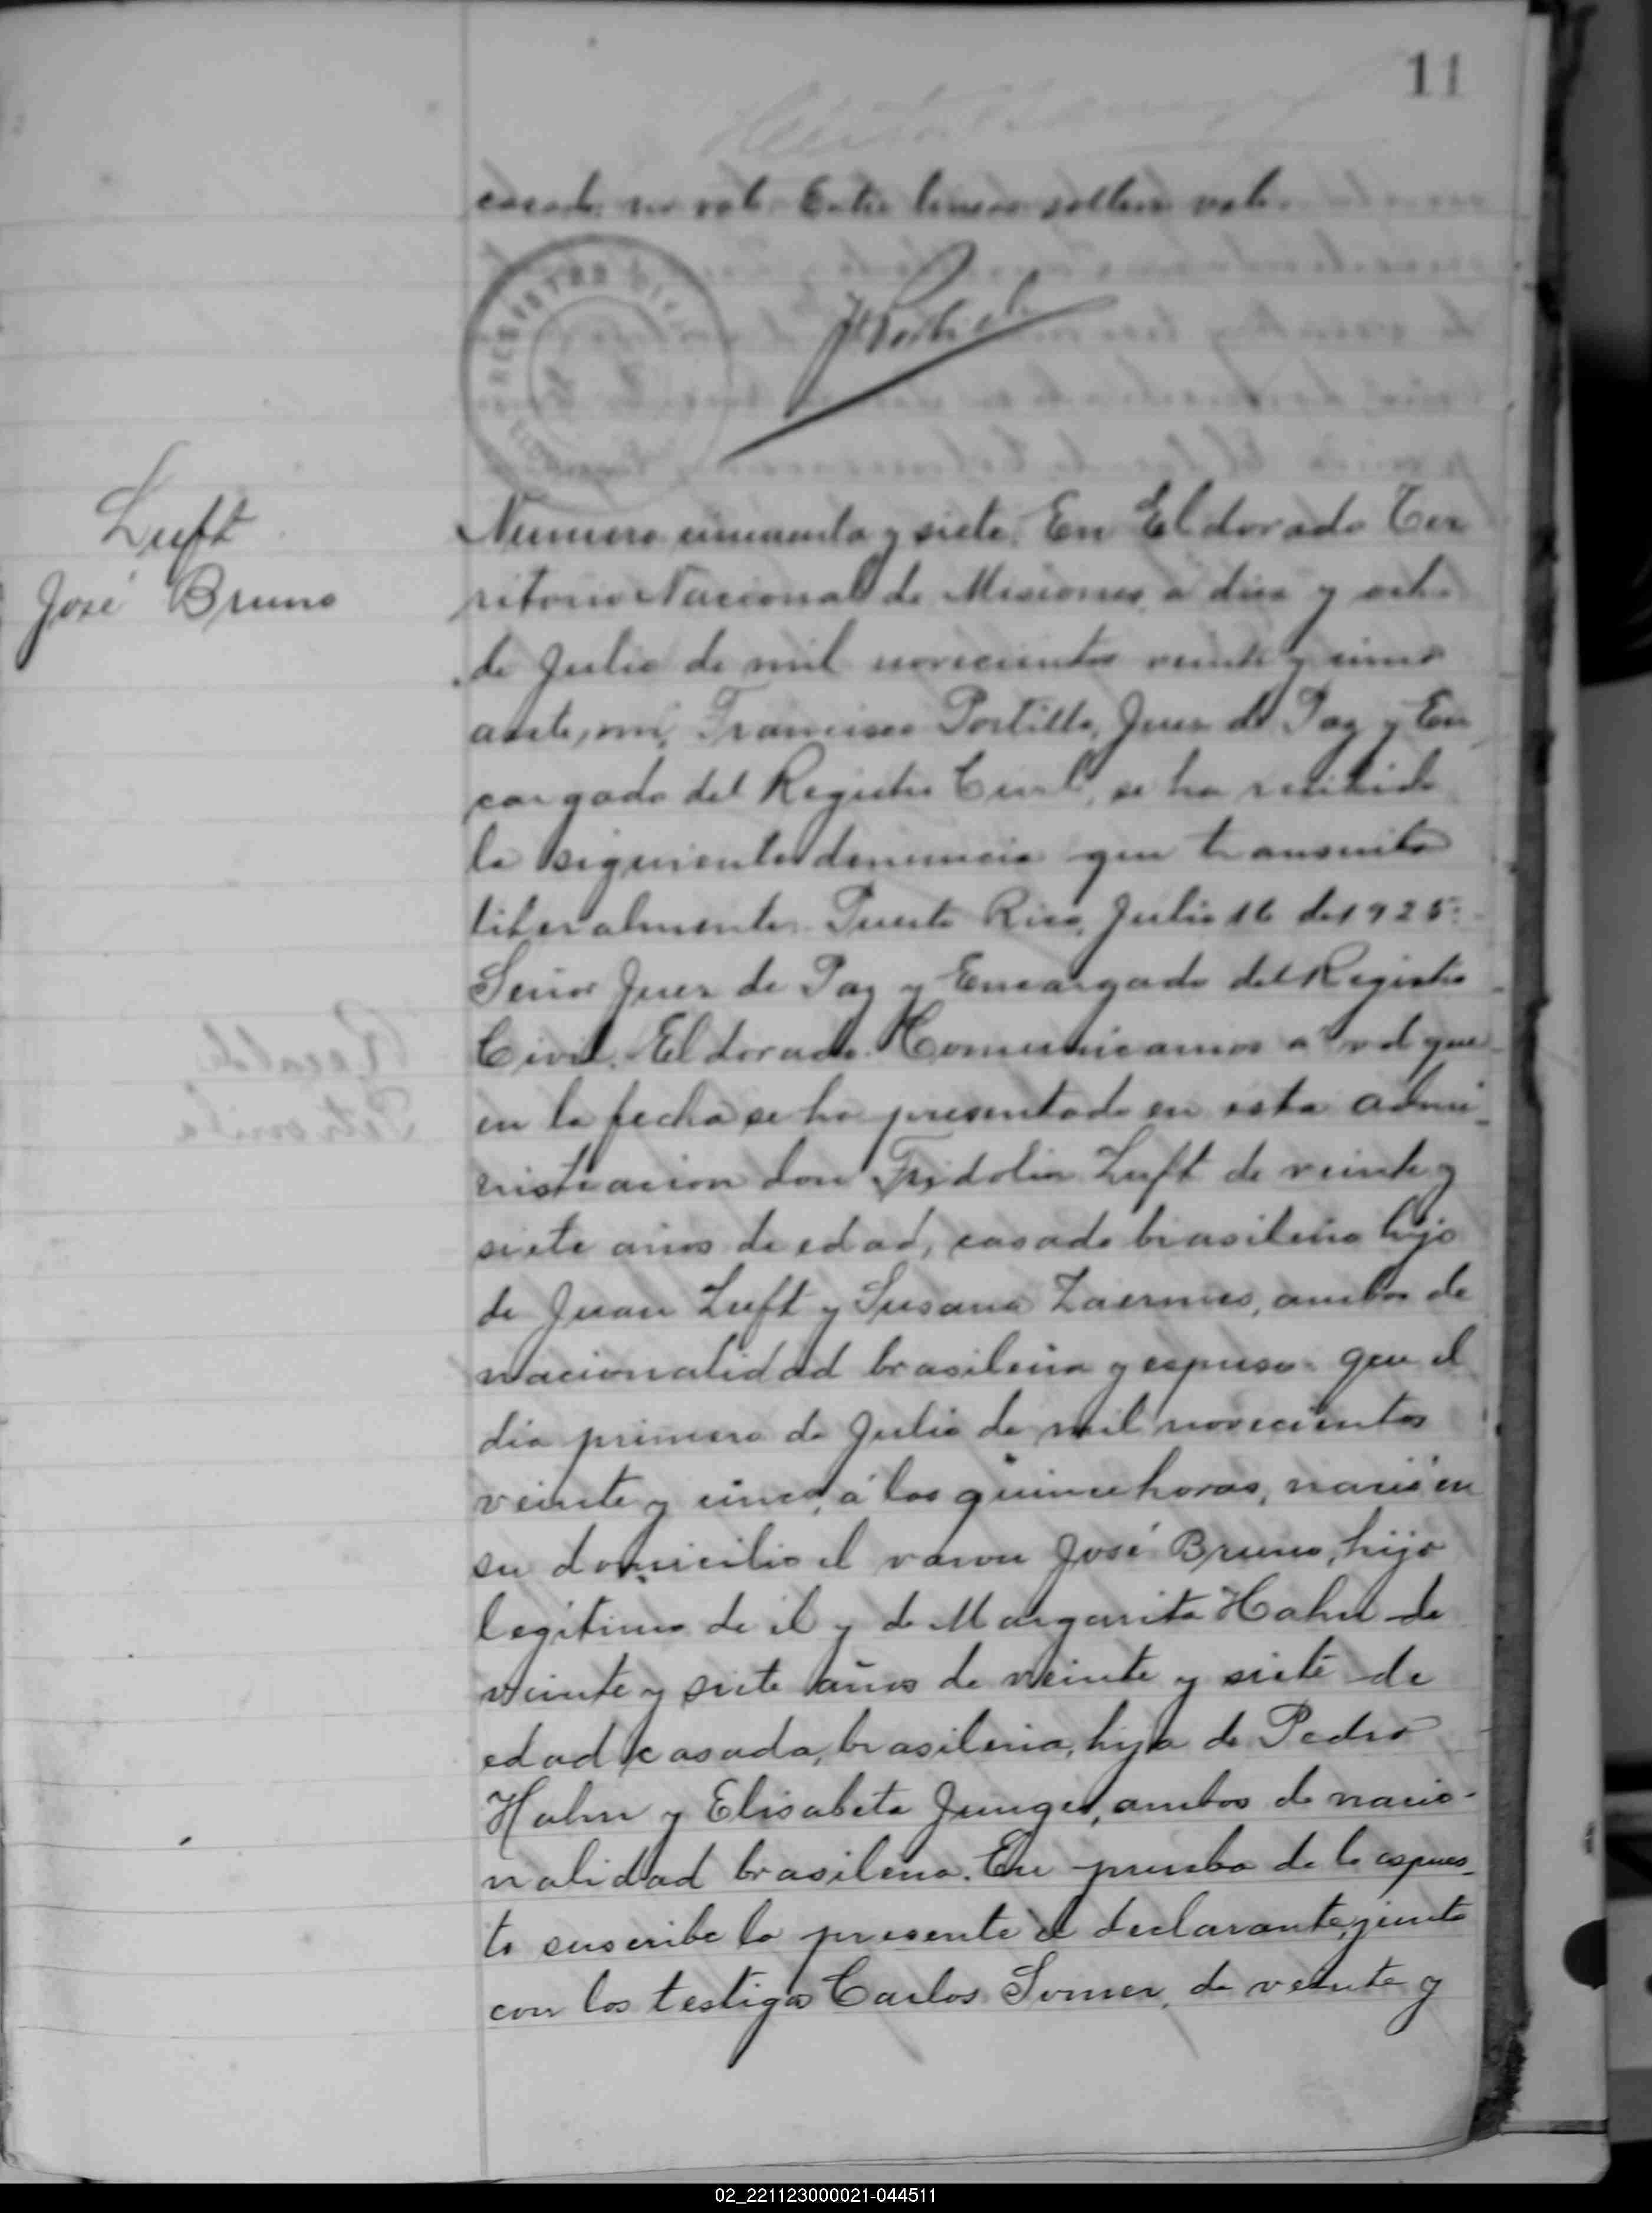 11
casado no vale. Entre lineas soltero vale.
REGISTRO CIVIL
Luft
José Bruno
Numero cincuenta y siete. En Eldorado Ter
ritorio Nacional de Misiones, a diez y ocho
de Julio de mil novecientos veinte y cinco
ante, mi, Francisco Portillo, Juez de Paz y En
cargado del Registro Civil, se ha recibido
la siguiente denuncia que transcribo
literalmente. Puerto Rico, Julio 16 de 1925.
Señor Juez de Paz y Encargado del Registro
Civil. Eldorado. Comunicamos a vd que
en la fecha se ha presentado en esta admi-
nistracion don Fridolin Luft de veinte y
siete años de edad, casado brasileño hijo
de Juan Luft y Susana ambos de
nacionalidad brasileña y expuso: que el
dia primero de Julio de mil novecientos
veinte y cinco, á las quince horas, nació en
su domicilio el varon José Bruno, hijo
legitimo de él y de Margarita Hahn de
veinte y siete años de veinte y siete de
edad casada, brasileña, hija de Pedro
Hahn y Elisabeta Junges, ambos de nacio-
nalidad brasileña. En prueba de lo espues-
to suscribe la presente el declarante, junto
con los testigos Carlos Somer, de veinte y
02_221123000021-044511